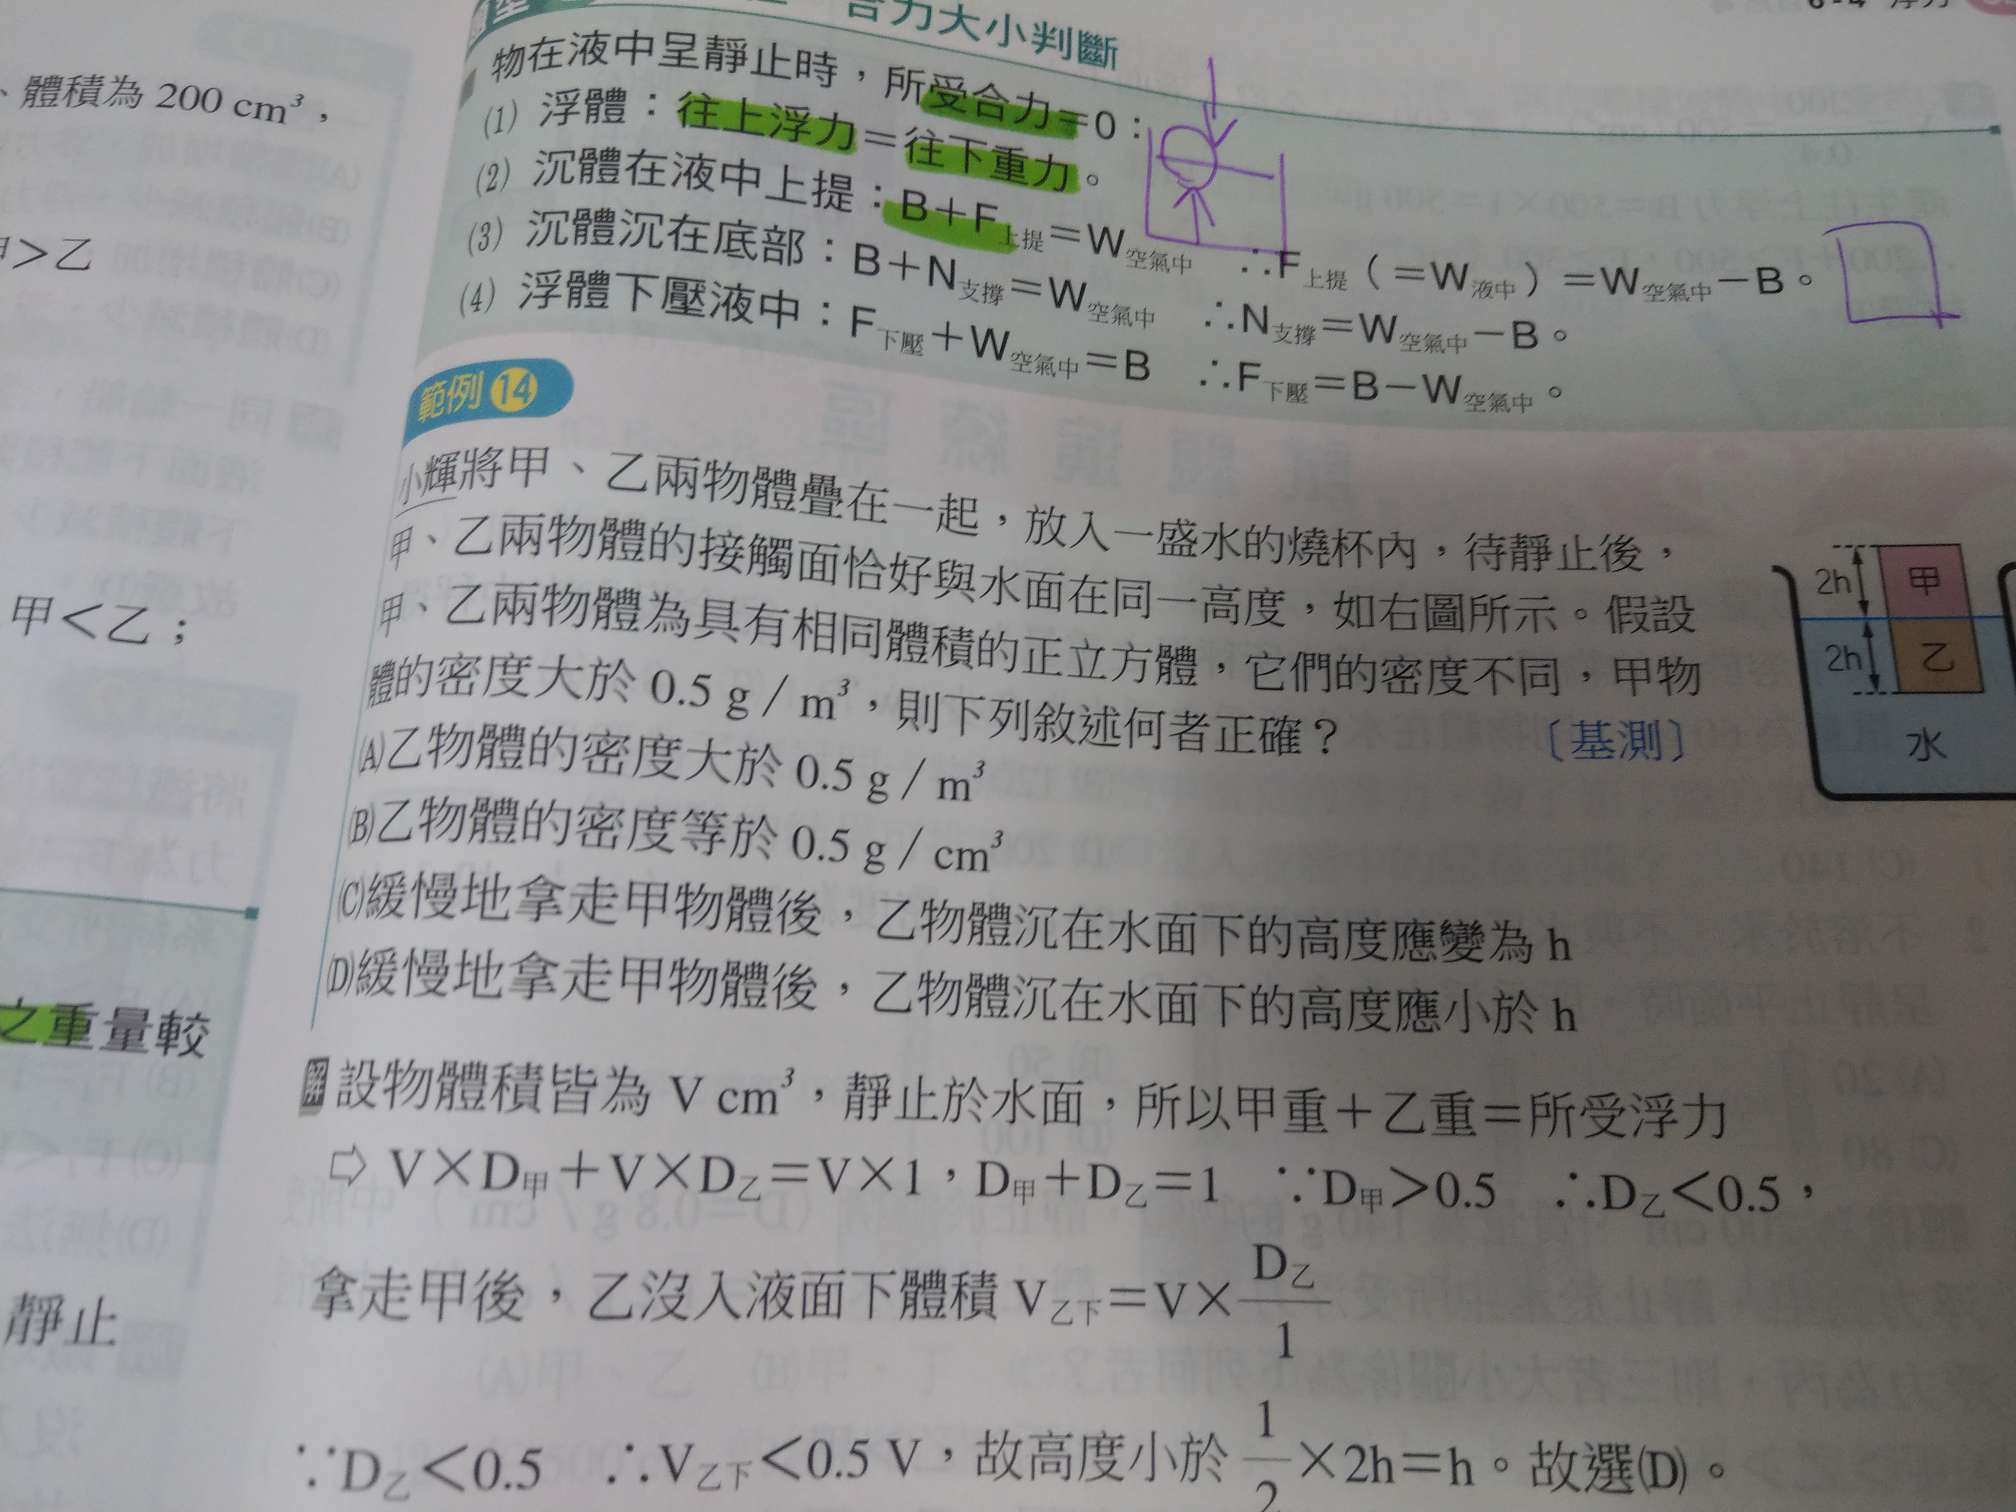 6-4 浮力
合力大小判斷
物在液中呈靜止時，所受合力＝0：
(1) 浮體：往上浮力＝往下重力。
(2) 沉體在液中上提：B＋F上提＝W空氣中 ∴F上提（＝W液中）＝W空氣中－B。
(3) 沉體沉在底部：B＋N支撐＝W空氣中 ∴N支撐＝W空氣中－B。
(4) 浮體下壓液中：F下壓＋W空氣中＝B ∴F下壓＝B－W空氣中。
範例 14
小輝將甲、乙兩物體疊在一起，放入一盛水的燒杯內，待靜止後，
甲、乙兩物體的接觸面恰好與水面在同一高度，如右圖所示。假設
甲、乙兩物體為具有相同體積的正立方體，它們的密度不同，甲物
體的密度大於 0.5 g／m³，則下列敘述何者正確？ 〔基測〕
(A)乙物體的密度大於 0.5 g／m³
(B)乙物體的密度等於 0.5 g／cm³
(C)緩慢地拿走甲物體後，乙物體沉在水面下的高度應變為 h
(D)緩慢地拿走甲物體後，乙物體沉在水面下的高度應小於 h
2h 甲
2h 乙
水
解 設物體積皆為 V cm³，靜止於水面，所以甲重＋乙重＝所受浮力
⇨ V×D甲＋V×D乙＝V×1，D甲＋D乙＝1 ∵D甲＞0.5 ∴D乙＜0.5，
拿走甲後，乙沒入液面下體積 V乙下＝V×D乙/1
∵D乙＜0.5 ∴V乙下＜0.5 V，故高度小於 1/2×2h＝h。故選(D)。
、體積為 200 cm³，
甲＞乙
甲＜乙；
之重量較
靜止